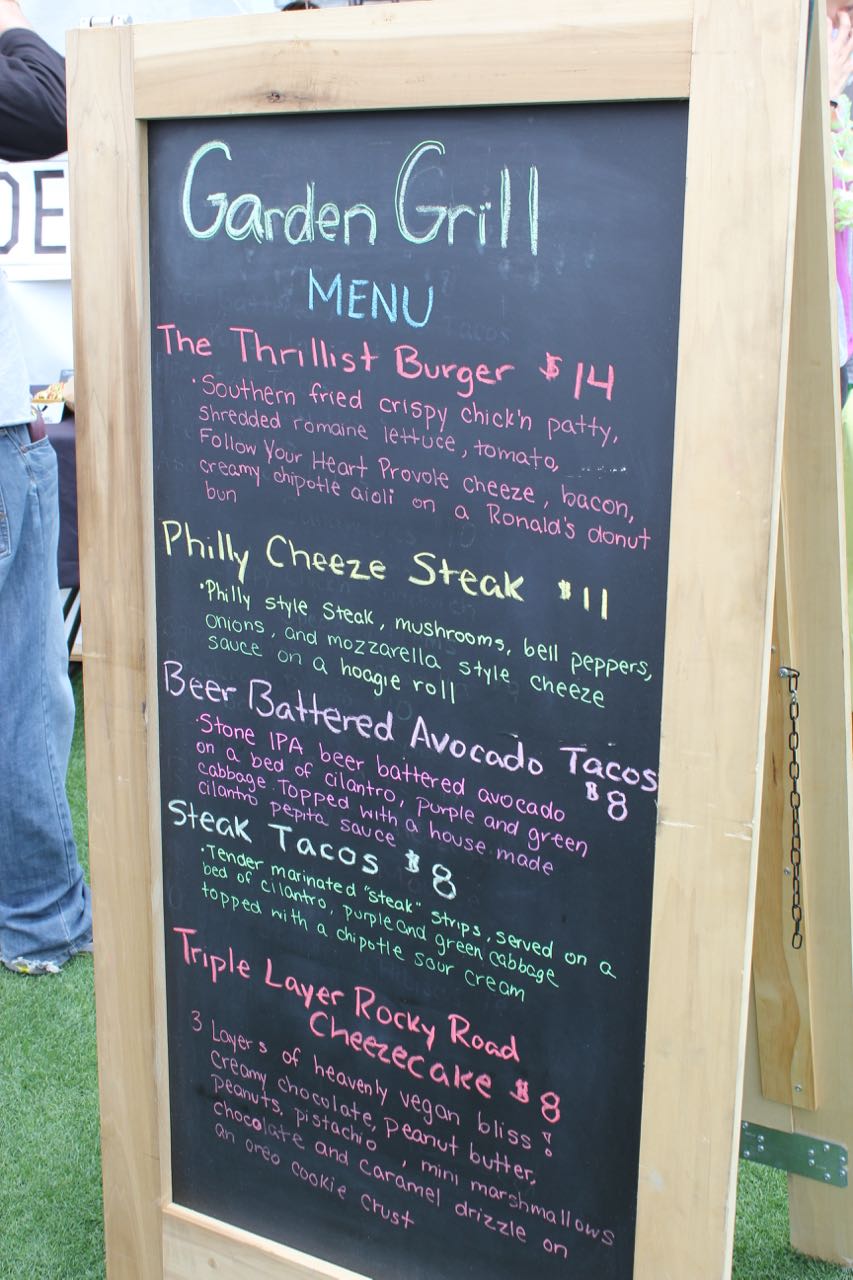 DE
Garden Grill
MENU
The Thrillist Burger $14
·Southern fried crispy chick'n patty,
shredded romaine lettuce, tomato,
Follow Your Heart Provole cheeze, bacon,
creamy chipotle aioli on a Ronald's donut
bun
Philly Cheeze Steak $11
·Philly style steak, mushrooms, bell peppers,
onions, and mozzarella style cheeze
sauce on a hoagie roll
Beer Battered Avocado Tacos
$8
·Stone IPA beer battered avocado
on a bed of cilantro, purple and green
cabbage. Topped with a house made
cilantro pepita sauce
Steak Tacos $8
·Tender marinated "steak" strips, served on a
bed of cilantro, purple and green cabbage
topped with a chipotle sour cream
Triple Layer Rocky Road
Cheezecake $8
3 Layers of heavenly vegan bliss!
creamy chocolate, peanut butter,
peanuts, pistachio, mini marshmallows
chocolate and caramel drizzle on
an oreo cookie crust